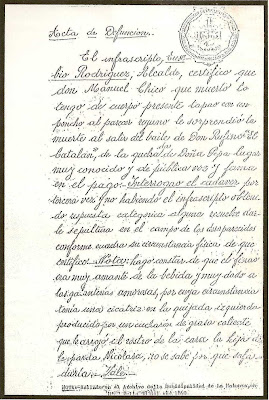 Acta de Difuncion.
El infrascripto, Euse
bio Rodriguez, Alcalde, certifico que
don Manuel Chico que muerto lo
tengo de cuerpo presente tapao con un
poncho al parecer reyuno le sorprendió la
muerte al salir del baile de Don Rufino "El
Catalán" de la quebrá de Doña Pepa lugar
muy conocido y de pública voz y fama
en el pago. Interrogao el cadaver por
tercera vez y no habiendo el infrascripto obteni
do respuesta categorica alguna resuelvo dar
le sepultura en el campo de los desaparecidos
conforme cuadra su circunstancia física de que
certifico. Nota: hago constar de que el finao
era muy amante de la bebida y muy dado a
las galanterias amorosas, por cuya circunstancia
tenia una cicatris en la quijada izquierda
producida por un cucharón de grasa caliente
que le arrojó el rostro de la cara la hija de
la parda Nicolasa, no se sabe por que safa
duria. Vale.